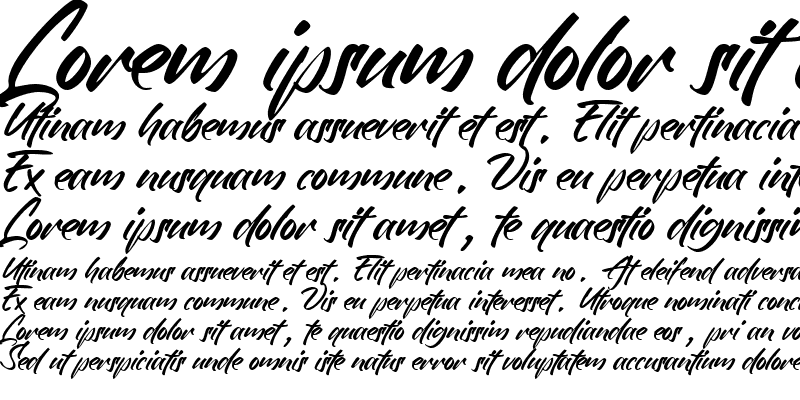 Lorem ipsum dolor sit
Utinam habemus assueverit et est. Elit pertinacia
Ex eam nusquam commune. Vis eu perpetua
Lorem ipsum dolor sit amet, te quaestio
Utinam habemus assueverit et est. Elit pertinacia mea no. At eleifend
Ex eam nusquam commune. Vis eu perpetua interesset. Utroque nominati
Lorem ipsum dolor sit amet, te quaestio dignissim repudiandae eos, pri an
Sed ut perspiciatis unde omnis iste natus error sit voluptatem accusantium dolore